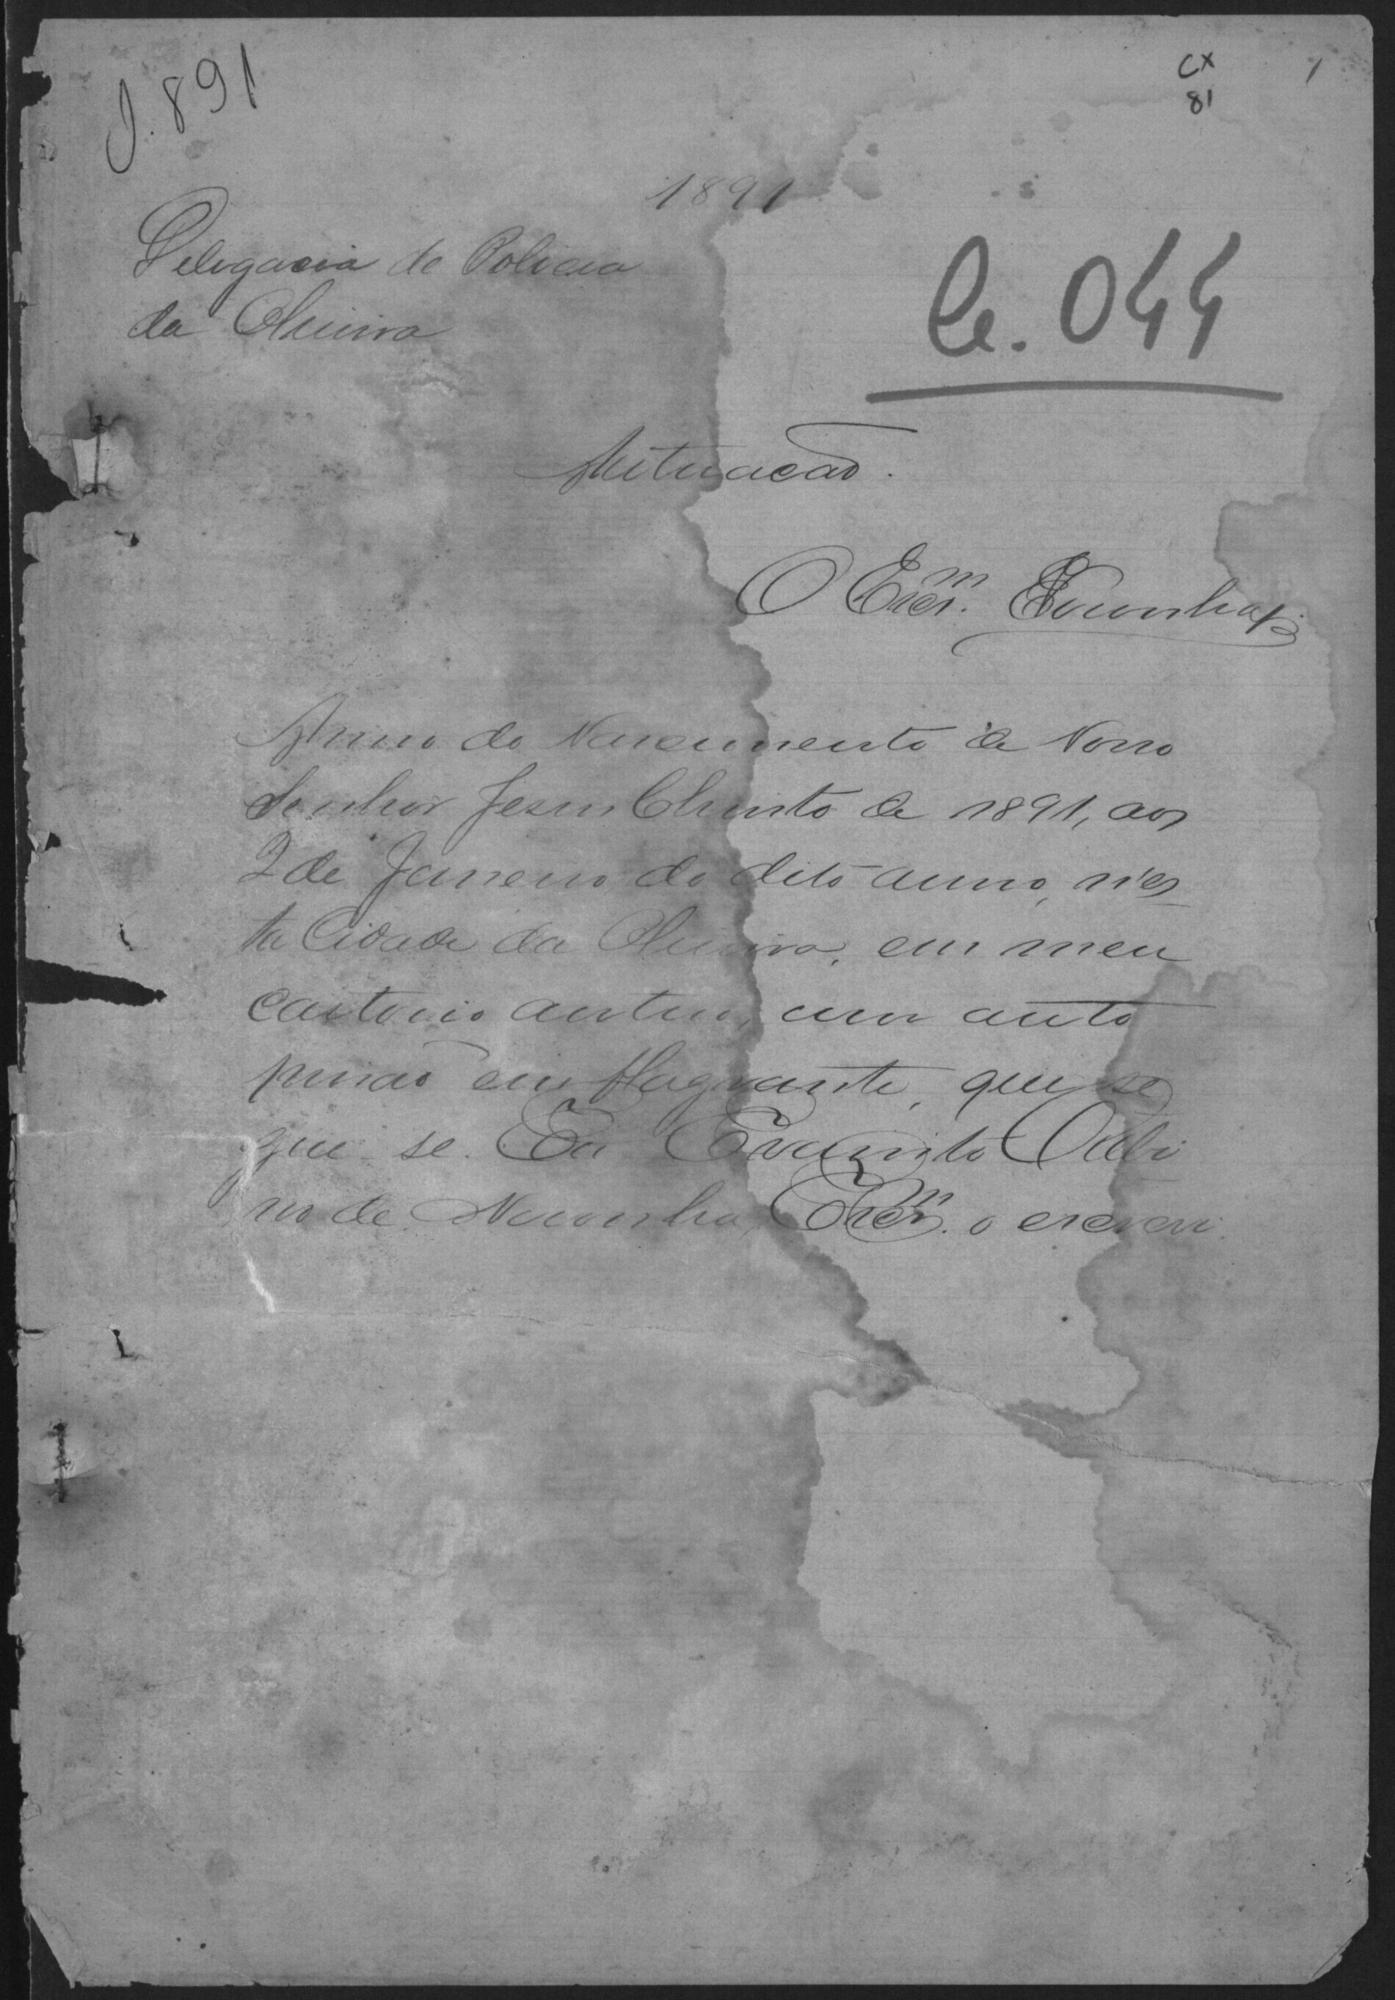 J. 891
CX
81
1
1891
Delegacia de Policia
da Oliveira
C. 044
Autuacão.
O Escm. Noronha
Anno do Nascimento de Nosso
Senhor Jesus Christo de 1891, aos
2 de Janeiro do dito anno, n'es
ta Cidade da Oliveira, em meu
cartorio autuei, um auto
prisão em flagrante, que se
gue se. Eu Evaristo Albi
no de Noronha, Escm. o escrevi